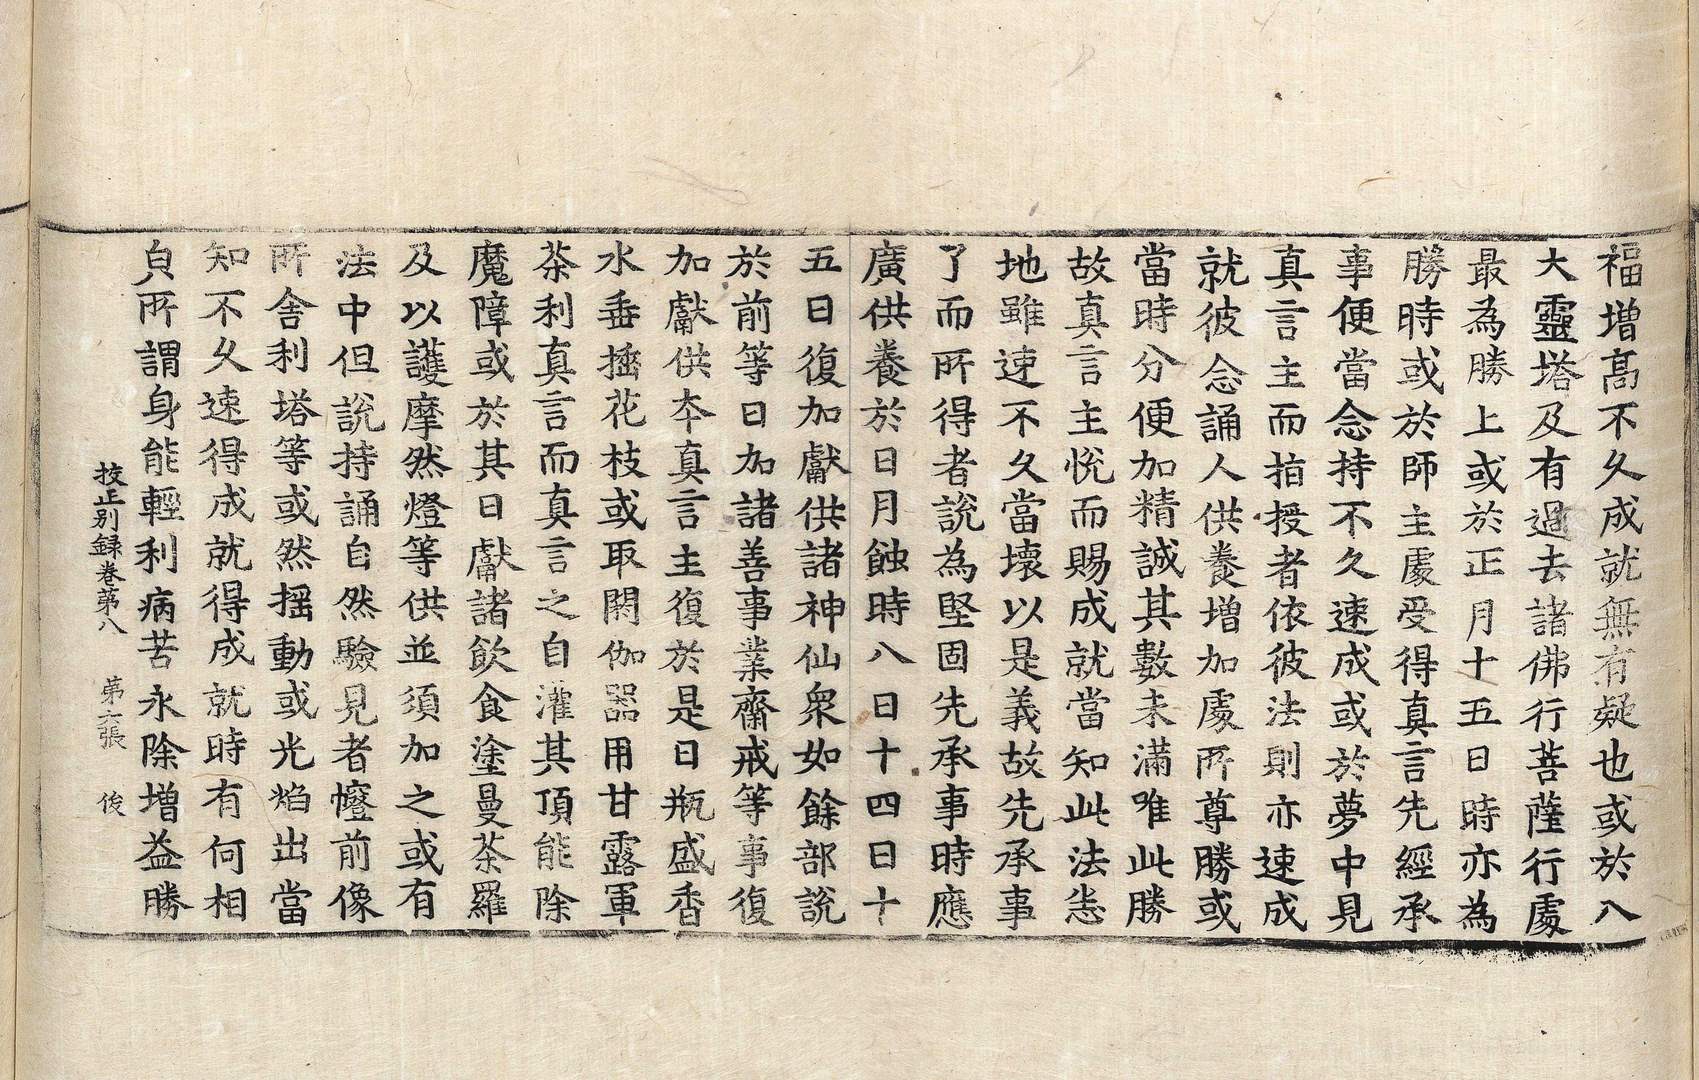 福增高不久成就無有疑也或於八
大靈塔及有過去諸佛行菩薩行處
最為勝上或於正月十五日時亦為
勝時或於師主處受得真言先經承
事便當念持不久速成或於夢中見
真言主而指授者依彼法則亦速成
就彼念誦人供養增加處所尊勝或
當時分便加精誠其數未滿唯此勝
故真言主悅而賜成就當知此法恙
地雖速不久當壞以是義故先承事
了而所得者說為堅固先承事時應
廣供養於日月蝕時八日十四日十
五日復加獻供諸神仙眾如餘部說
於前等日加諸善事業齋戒等事復
加獻供本真言主復於是日瓶盛香
水垂插花枝或取閼伽器用甘露軍
荼利真言而真言之自灌其頂能除
魔障或於其日獻諸飲食塗曼荼羅
及以護摩然燈等供並須加之或有
法中但說持誦自然驗見者幰前像
所舍利塔等或然搖動或光焰出當
知不久速得成就得成就時有何相
皃所謂身能輕利病苦永除增益勝
挍正別錄卷第八 第六張 俊